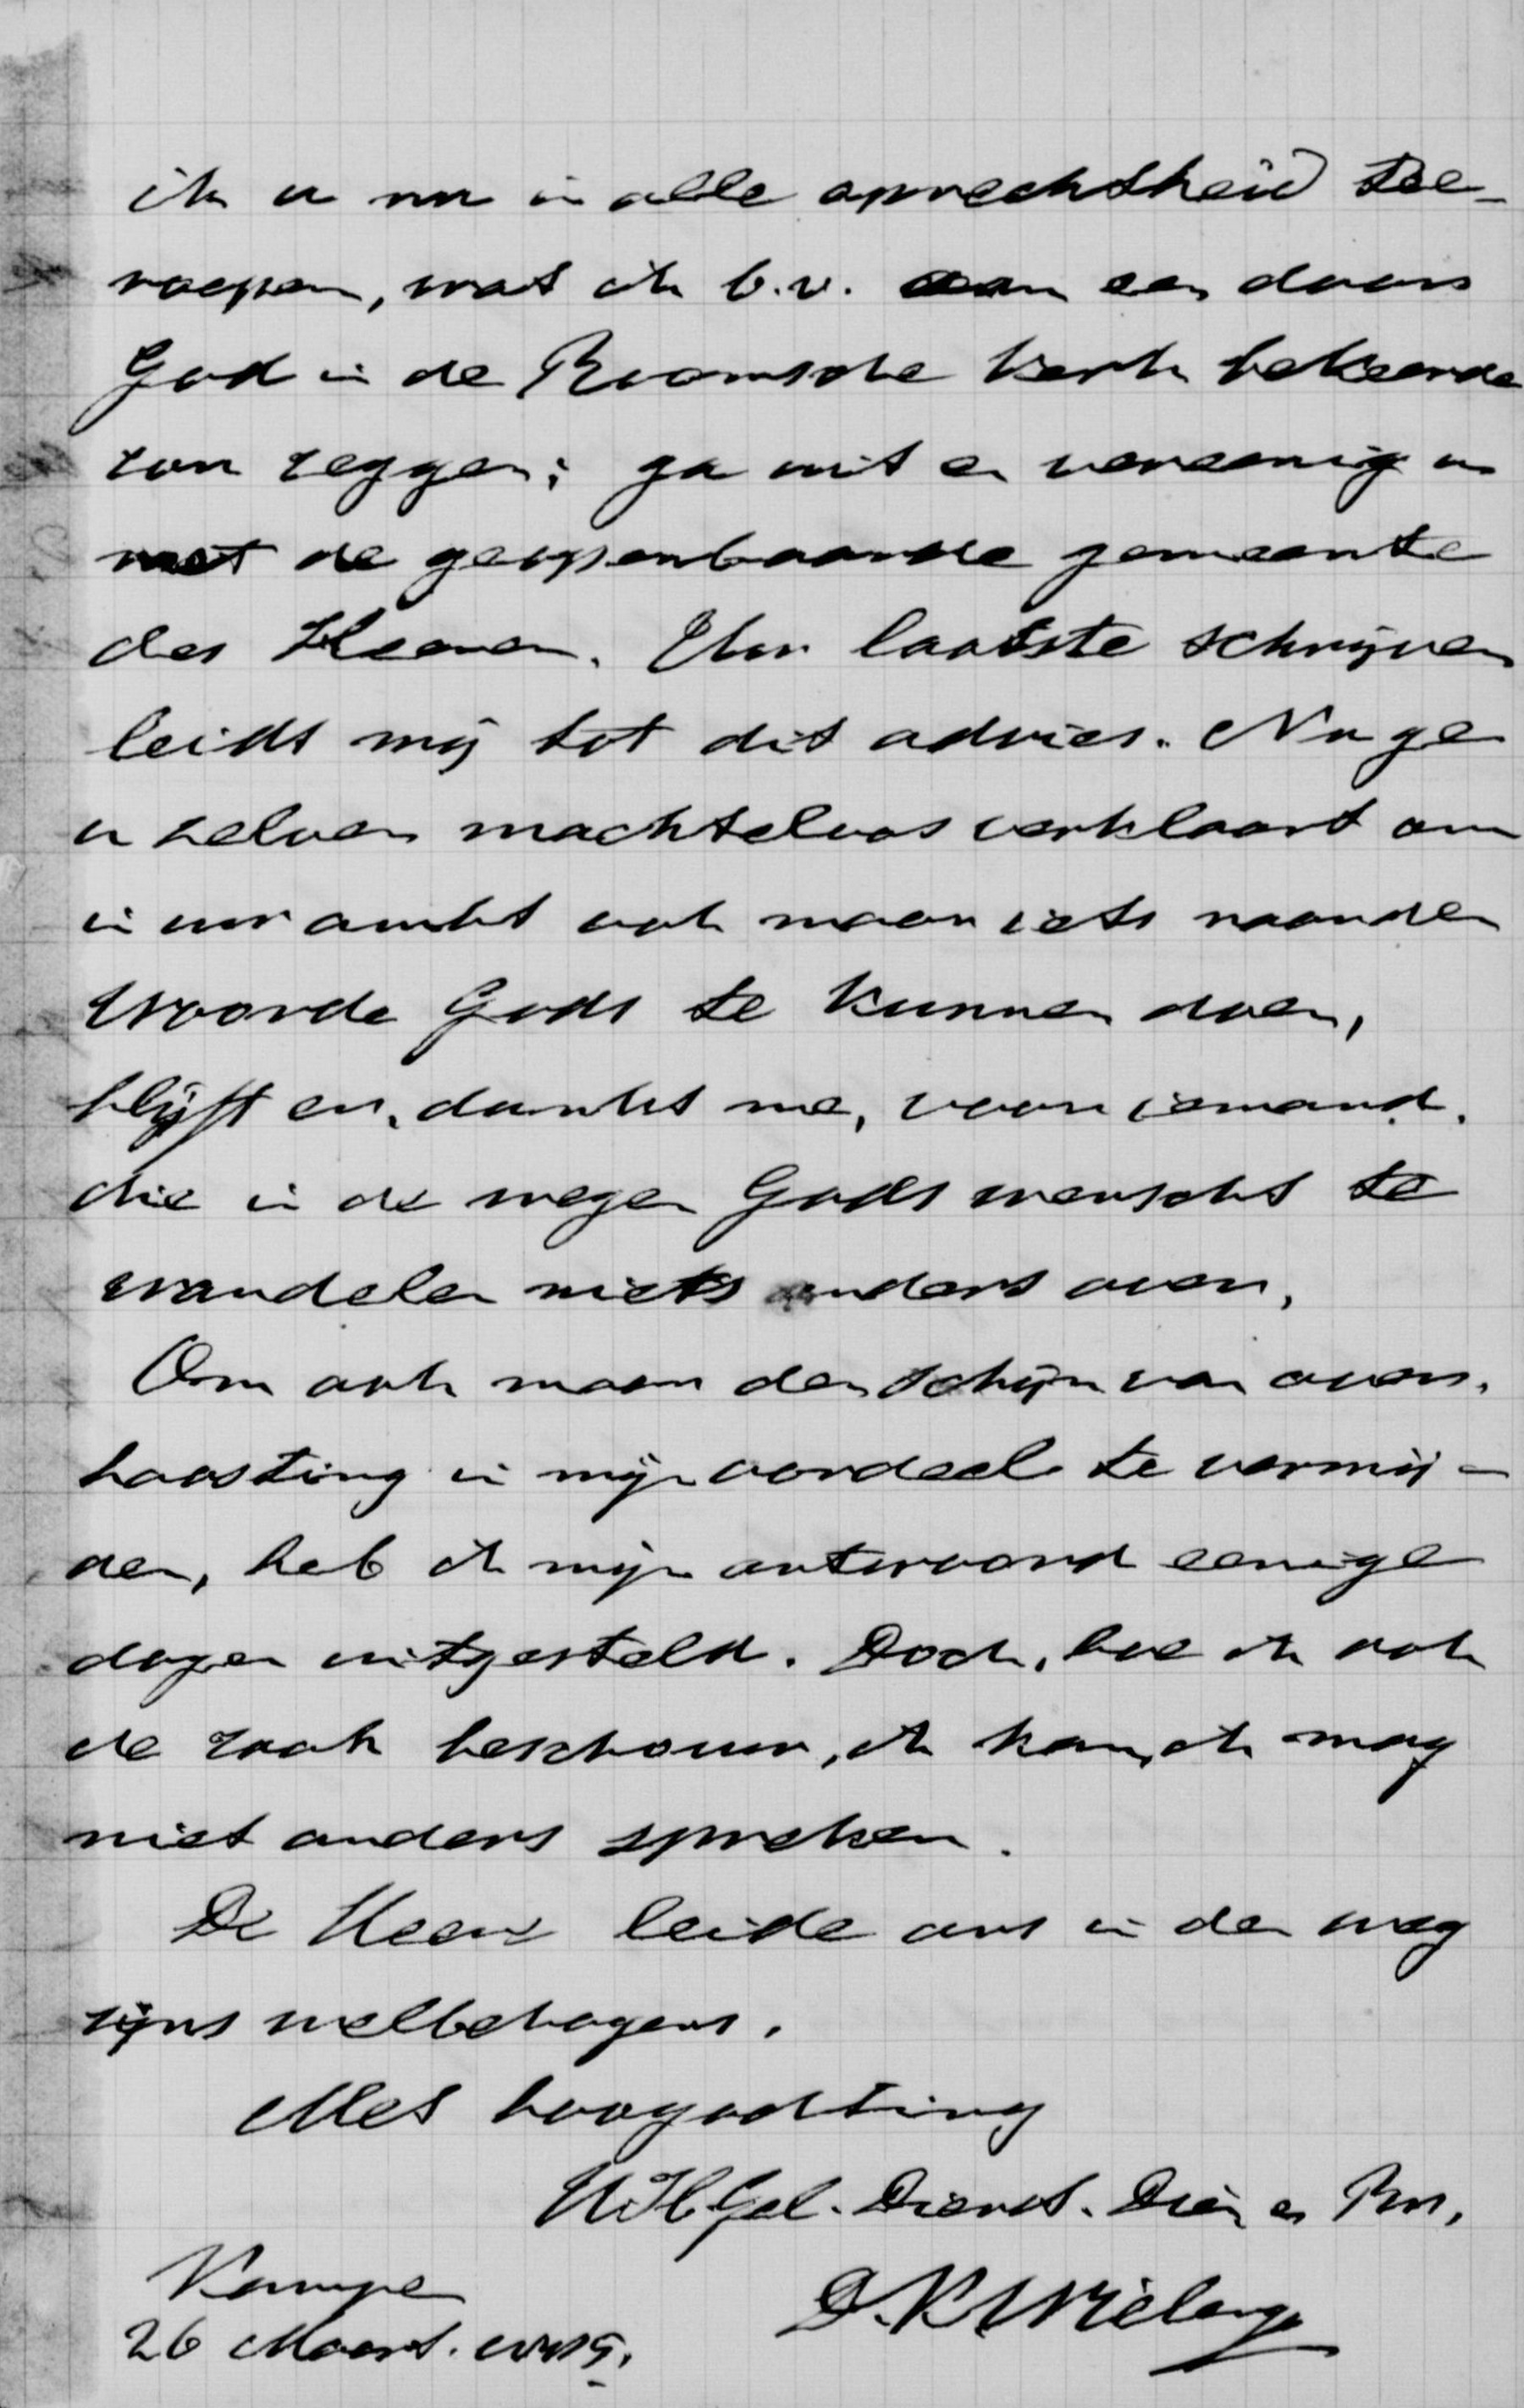 ik u nu in alle oprechtheid toe-
roepen, wat ik b.v. aan een door
God in de Roomsche kerk bekeerde
zou zeggen: ga uit en vereenig u
met de geopenbaarde gemeente
des Heeren. Uw laatste schrijven
leidt mij tot dit advies. Nu ge
u zelven machteloos verklaart om
in uw ambt ook maar iets naar den
Woorde Gods te kunnen doen,
blijft er, dunkt me, voor iemand,
die in de wegen Gods wenscht te
wandelen niets anders over.
Om ook maar den schijn van over-
haasting in mijn oordeel te vermij-
den, heb ik mijn antwoord eenige
dagen uitgesteld. Doch, hoe ik ook
de zaak beschouw, ik kan, ik mag
niet anders spreken.
De Heere leide ons in den weg
zijns welbehagens.
Met hoogachting
UwHGel. Dienst. Dien. en Br.,
Kampen
D.K. Wielenga
26 Maart.